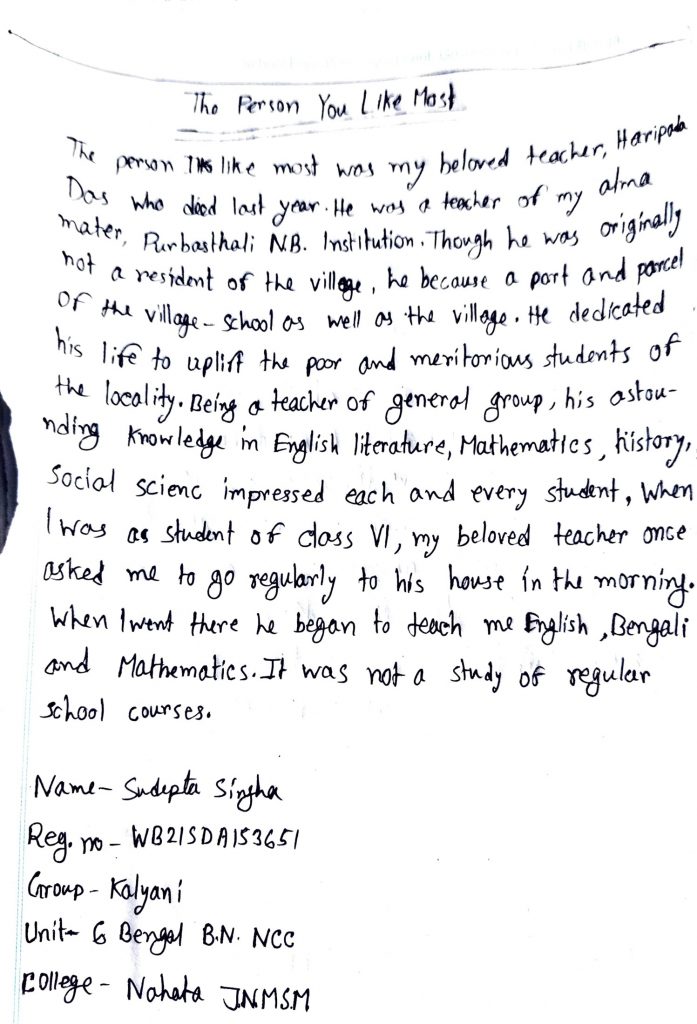 The Person You Like Most
The person I like most was my beloved teacher, Haripada
Das who died last year. He was a teacher of my alma
mater, Purbasthali N.B. Institution. Though he was originally
not a resident of the village, he because a part and parcel
of the village-school as well as the village. He dedicated
his life to uplift the poor and meritorious students of
the locality. Being a teacher of general group, his astou-
nding knowledge in English literature, Mathematics, history,
social scienc impressed each and every student, When
I was as student of class VI, my beloved teacher once
asked me to go regularly to his house in the morning.
When I went there he began to teach me English, Bengali
and Mathematics. It was not a study of regular
school courses.
Name- Sudepta Singha
Reg. no - WB21SDA153651
Group - Kalyani
Unit- 6 Bengal B.N. NCC
College - Nahata J.N.M.S.M